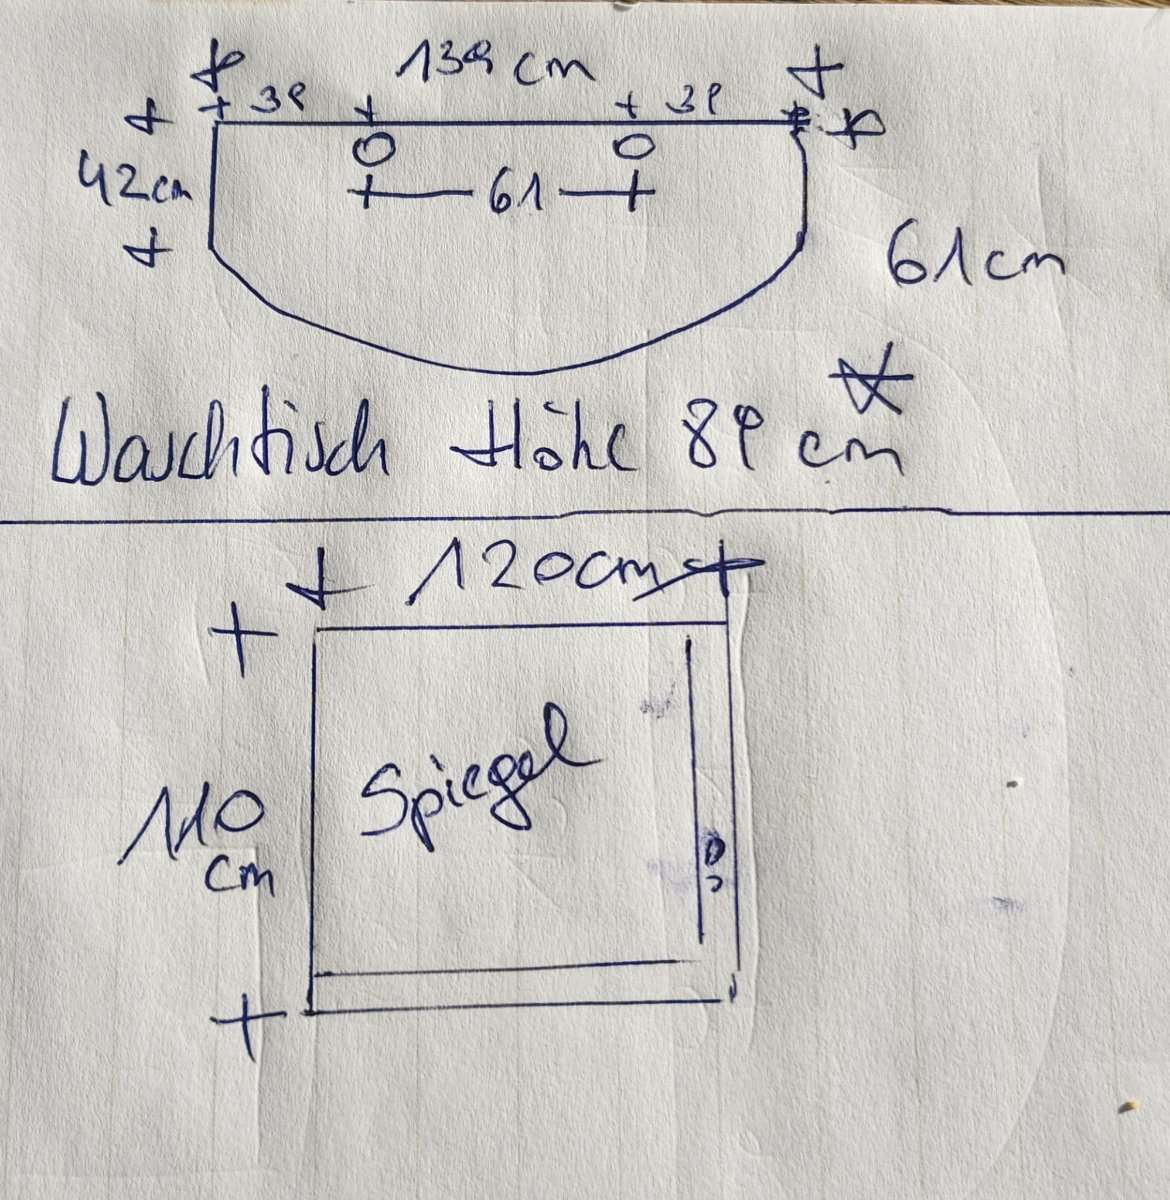 139 cm
39 39
42cm 61
61cm
Waschtisch Höhe 89 cm
120cm
Spiegel
110
cm